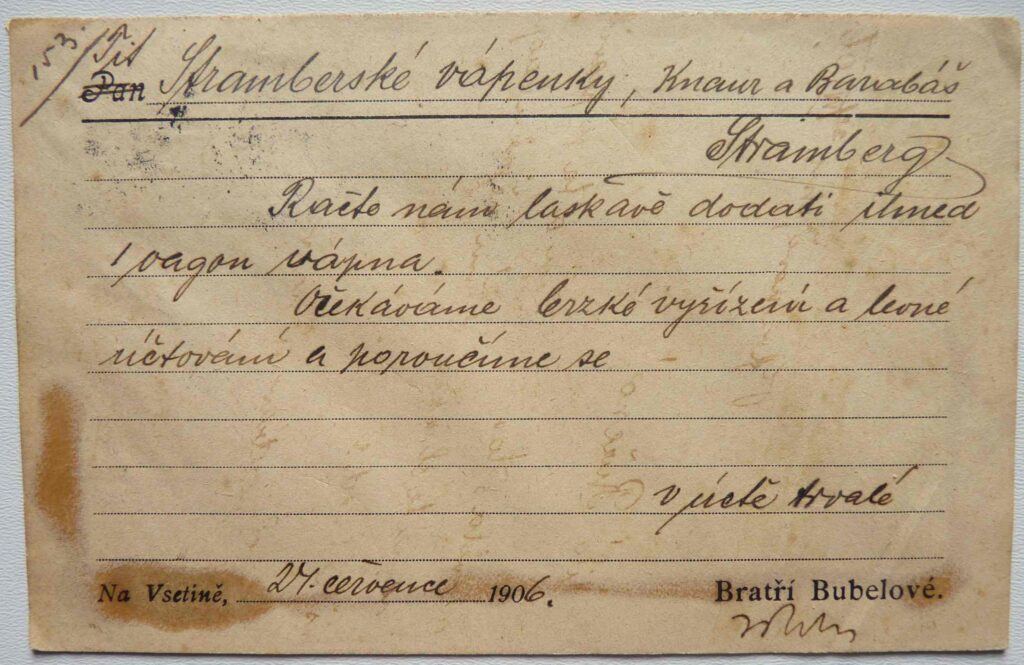 153. Tit
Pan Stramberské vápenky, Knaur a Barabáš
Stramberg
Račte nám laskavě dodati ihned
1 vagon vápna.
Očekáváme brzké vyřízení a levné
účtování a poroučíme se
v úctě trvalé
Na Vsetině, 24. července 1906.
Bratří Bubelové.